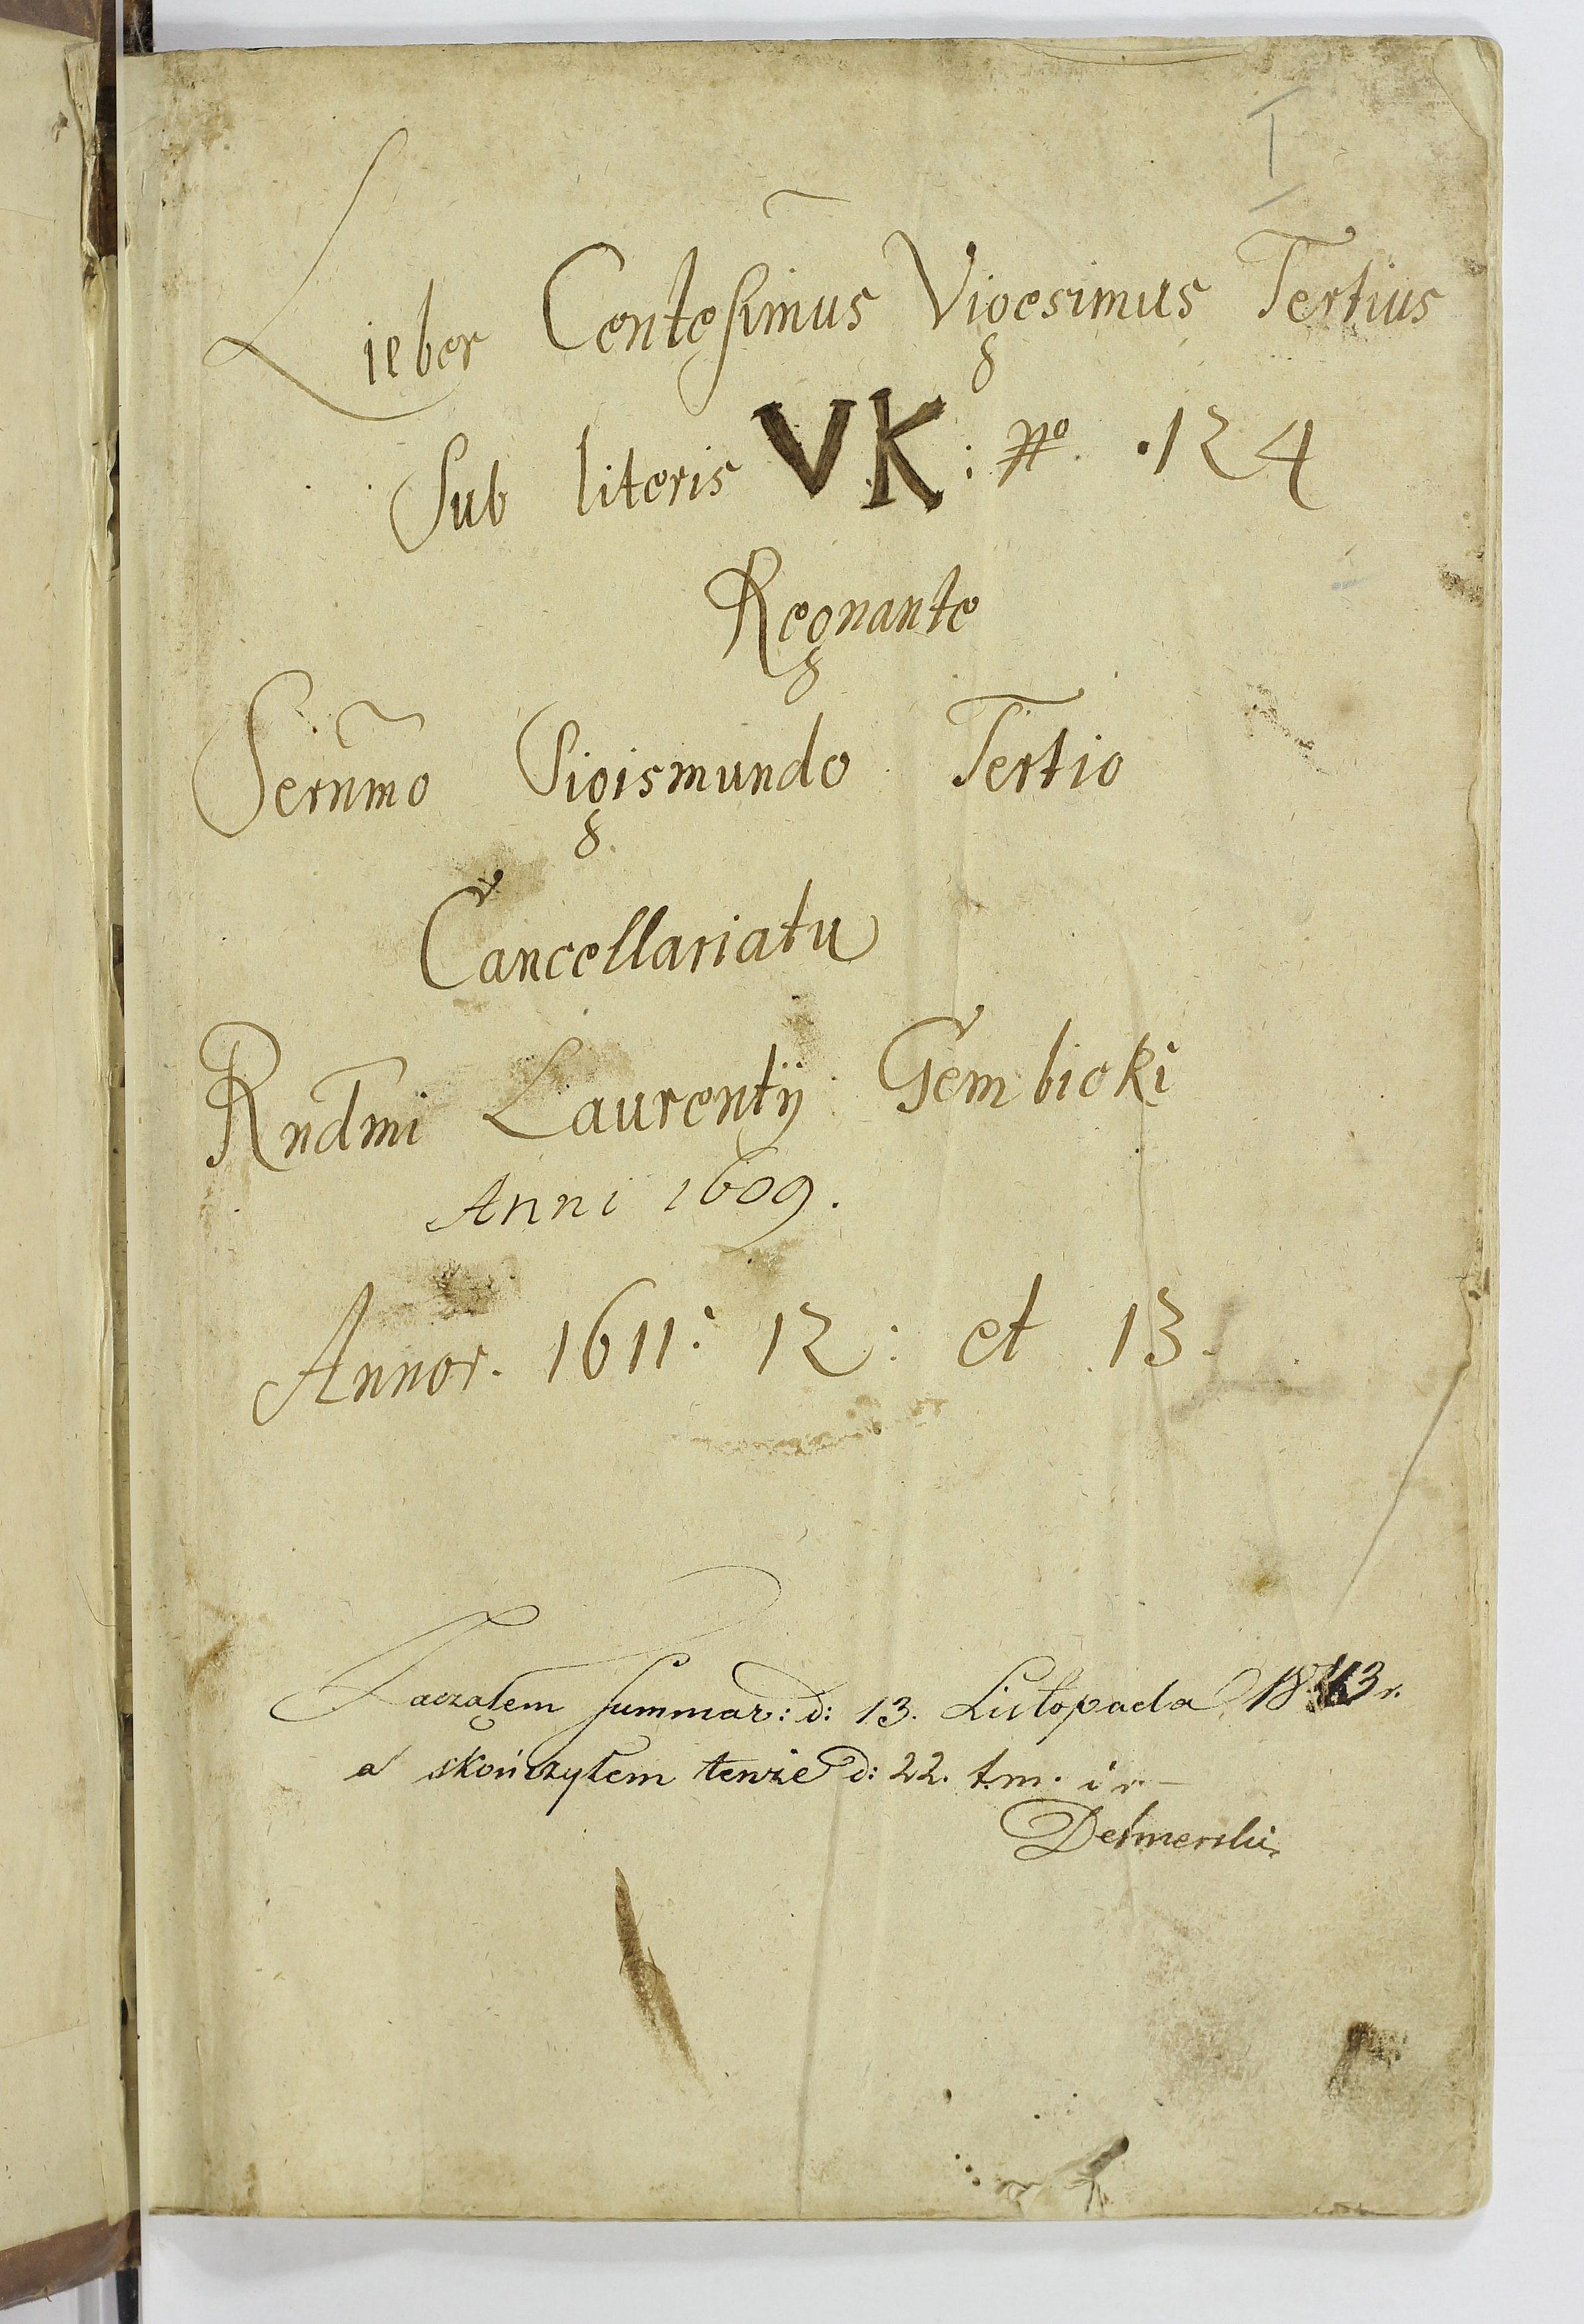 I
Lieber Centesim̃us Vigesimus Tertius
Sub literis VK: No. 124
Regnante
Sern̄mo Sigismundo Tertio
Cancellariatu
Rndm̄i Laurentij Gembicki
Anni 1609.
Annor. 1611: 12: et 13.
Zaczałem summar: d: 13. Listopada 1843 r.
a skończyłem tenże d: 22. t.m. i r